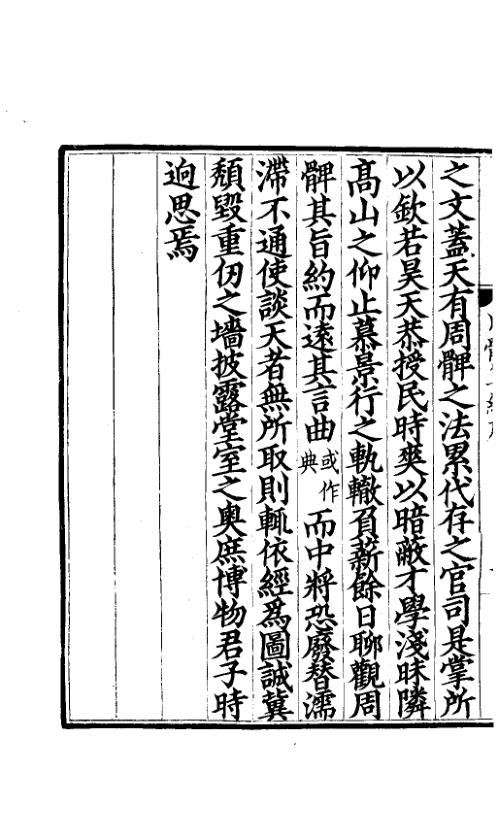 之文蓋天有周髀之法累代存之官司是掌所
以欽若昊天恭授民時爽以暗蔽才學淺昧隣
髙山之仰止慕景行之軌轍負薪餘日聊觀周
髀其旨約而遠其言曲或作典而中將恐廢替濡
滯不通使談天者無所取則輒依經為圖誠冀
頹毀重仞之墻披露堂室之奥庶博物君子時
逈思焉